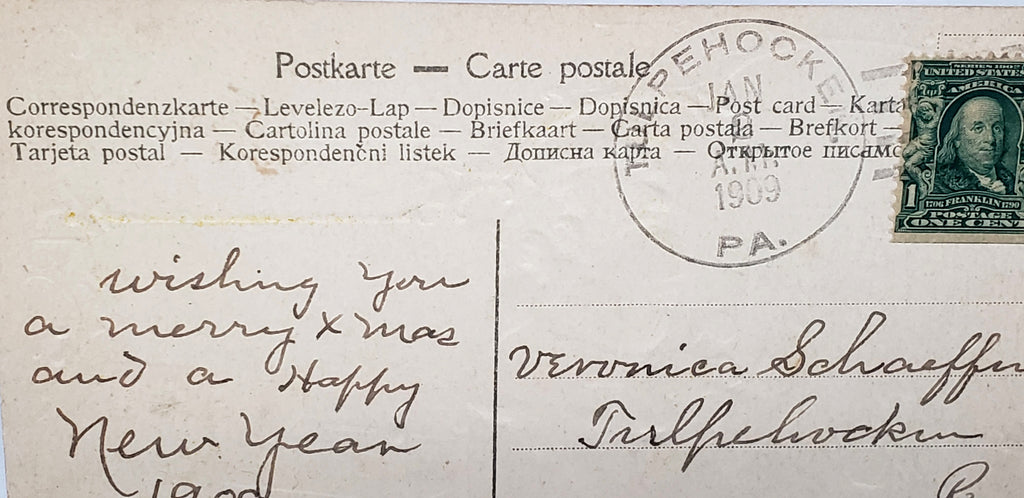 Postkarte — Carte postale
Correspondenzkarte — Levelezo-Lap — Dopisnice — Dopisnica — Post card — Karta
korespondencyjna — Cartolina postale — Briefkaart — Carta postala — Brefkort —
Tarjeta postal — Korespondenčni listek — Дописна карта — Открытое письмо
TULPEHOCKEN
JAN
A.M.
1909
PA.
SERIES 1902
UNITED STATES
AMERICA
1
1706 FRANKLIN 1790
POSTAGE
ONE CENT
wishing you
a merry xmas
and a Happy
New Year
Veronica Schaeffer
Tulpehocken
Pa